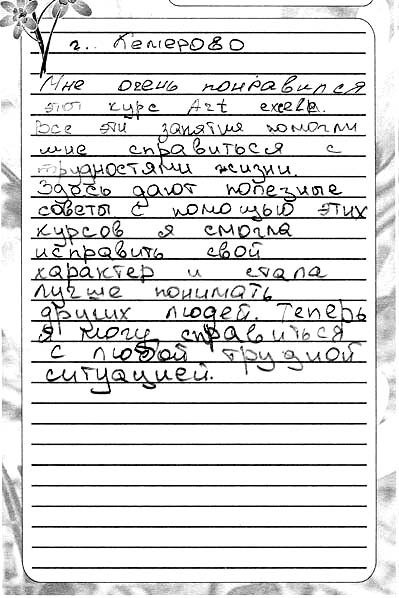 г. Кемерово
Мне очень понравился
этот курс Art excel.
Все эти занятия помогли
мне справиться с
трудностями жизни.
Здесь дают полезные
советы с помощью этих
курсов я смогла
исправить свой
характер и стала
лучше понимать
других людей. Теперь
я могу справиться
с любой трудной
ситуацией.